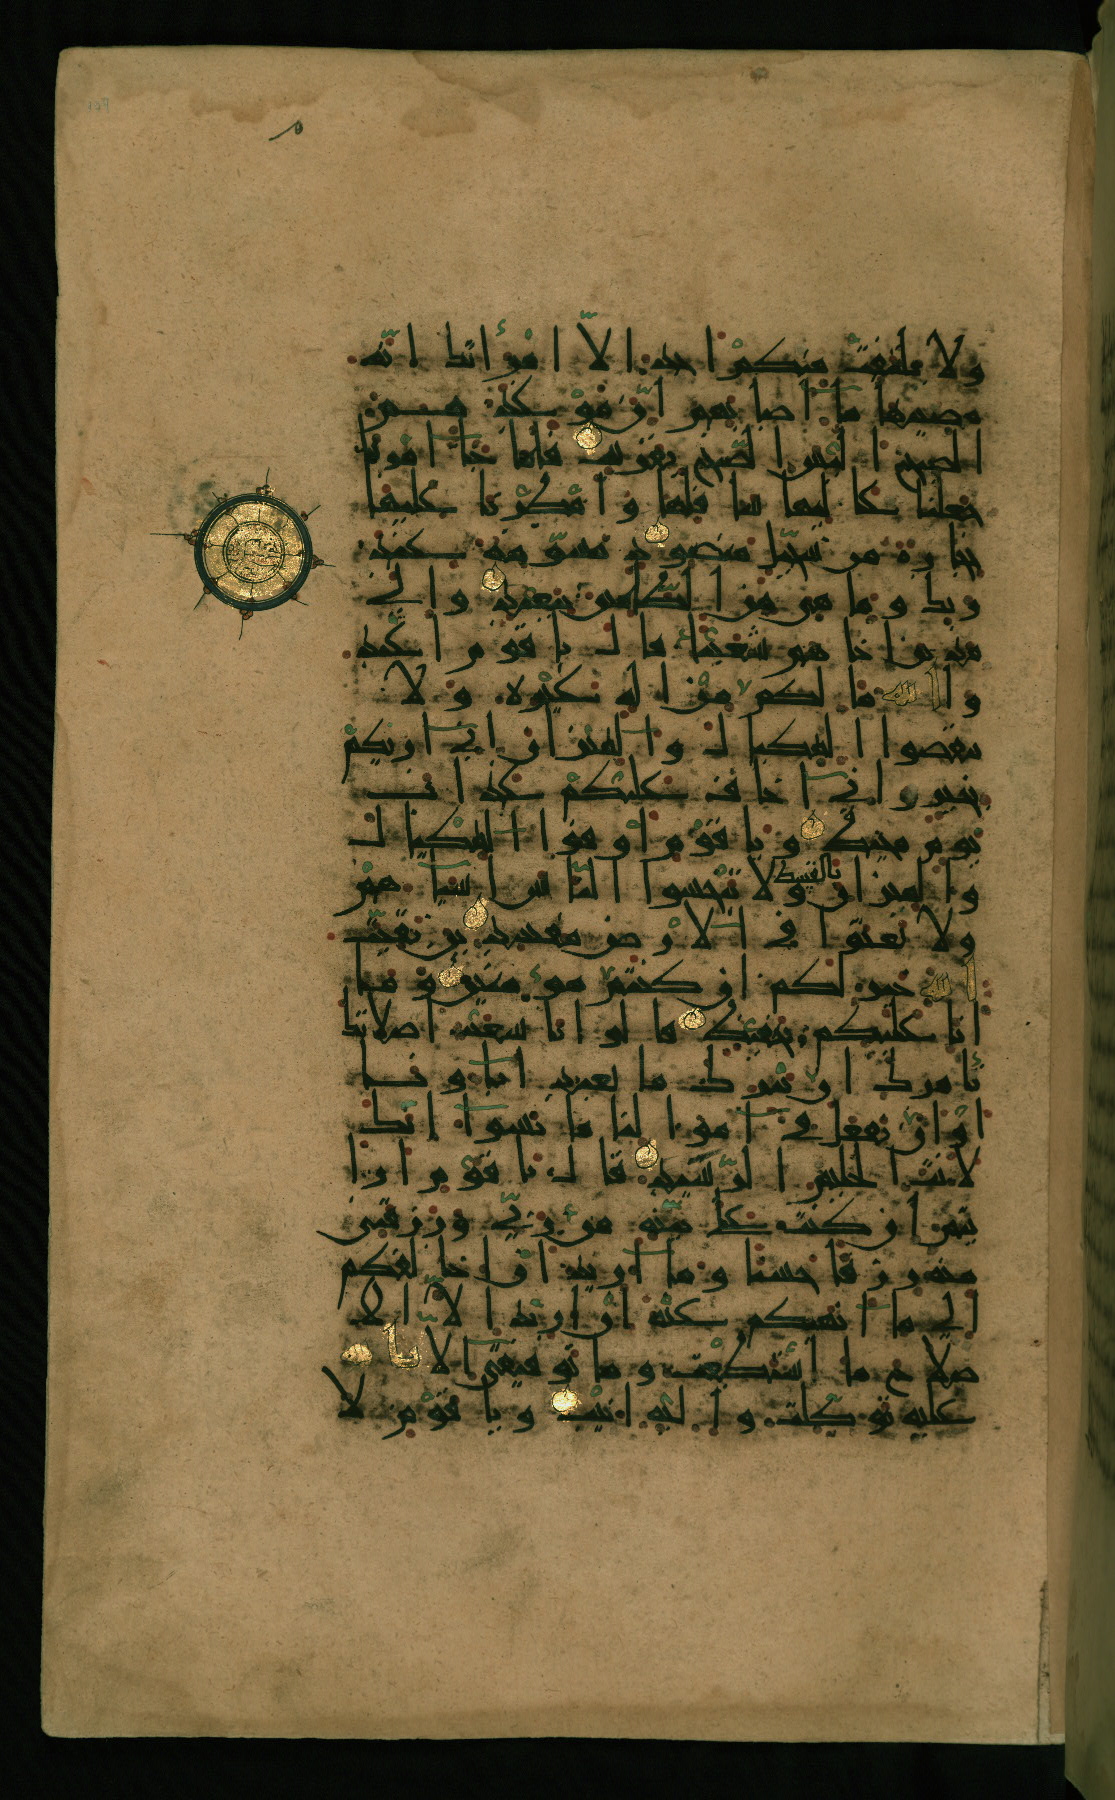 ولا يلتفت منكم احد الا امراتك انه
مصيبها ما اصابهم ان موعدهم
الصبح اليس الصبح بقريب فلما جا امرنا
جعلنا عاليها سافلها وامطرنا عليها
حجارة من سجيل منضود مسومة عند
ربك وما هي من الظلمين ببعيد والى
مدين اخاهم شعيبا قال يا قوم اعبد
وا الله ما لكم من اله غيره ولا
تنقصوا المكيال والميزان اني اريكم
بخير واني اخاف عليكم عذاب
يوم محيط ويا قوم اوفوا المكيال
والميزان بالقسط ولا تبخسوا الناس اشيا هم
ولا تعثوا في الارض مفسدين بقيت
الله خير لكم ان كنتم مومنين وما
انا عليكم بحفيظ قالوا يا شعيب اصلاتك
تامرك ان نترك ما يعبد اباونا
او ان نفعل في اموالنا ما نشوا انك
لانت الحليم الرشيد قال يا قوم ارا
يتم ان كنت على بينة من ربي ورزقني
منه رزقا حسنا وما اريد ان اخالفكم
الى ما انهيكم عنه ان اريد الا الا
صلاح ما استطعت وما توفيقي الا بالله
عليه توكلت واليه انيب ويا قوم لا